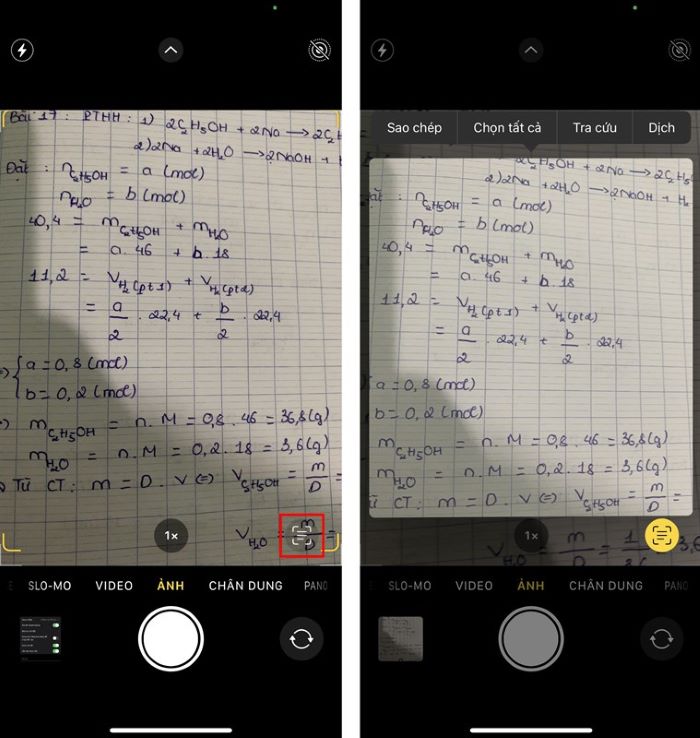 Bài 17 : PTHH : 1) 2C₂H₅OH + 2Na → 2C₂H
2) 2Na + 2H₂O → 2NaOH + H
Đặt : n_C₂H₅OH = a (mol)
n_H₂O = b (mol)
40,4 = m_C₂H₅OH + m_H₂O
= a. 46 + b. 18
11,2 = V_H₂(pt1) + V_H₂(pt2)
= a/2 . 22,4 + b/2 . 22,4
=> { a = 0,8 (mol)
b = 0,2 (mol)
m_C₂H₅OH = n. M = 0,8 . 46 = 36,8 (g)
m_H₂O = n. M = 0,2 . 18 = 3,6 (g)
Từ CT : m = D . V (=) V_C₂H₅OH = m/D =
V_H₂O = m/D =
1×
SLO-MO VIDEO ẢNH CHÂN DUNG PANO
Sao chép Chọn tất cả Tra cứu Dịch
2C₂H₅OH + 2Na → 2C₂H₅
2) 2Na + 2H₂O → 2NaOH + H₂
n_C₂H₅OH = a (mol)
n_H₂O = b (mol)
40,4 = m_C₂H₅OH + m_H₂O
= a. 46 + b. 18
11,2 = V_H₂(pt1) + V_H₂(pt2)
= a/2 . 22,4 + b/2 . 22,4
a = 0,8 (mol)
b = 0,2 (mol)
m_C₂H₅OH = n. M = 0,8 . 46 = 36,8 (g)
m_H₂O = n. M = 0,2 . 18 = 3,6 (g)
CT : m = D . V (=) V_C₂H₅OH = m/D =
V_H₂O = m/D =
1×
SLO-MO VIDEO ẢNH CHÂN DUNG PANO